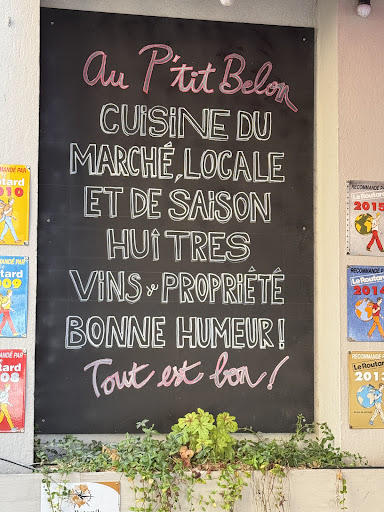 Au P'tit Belon
CUISINE DU
MARCHÉ, LOCALE
ET DE SAISON
HUÎTRES
VINS & PROPRIÉTÉ
BONNE HUMEUR!
Tout est bon!
MANDÉ PAR
tard
2010
tard
009
MANDÉ PAR
tard
008
RECOMMANDÉ PAR
Le Routard
2015
Le Routard
2014
RECOMMANDÉ PAR
Le Routard
2013